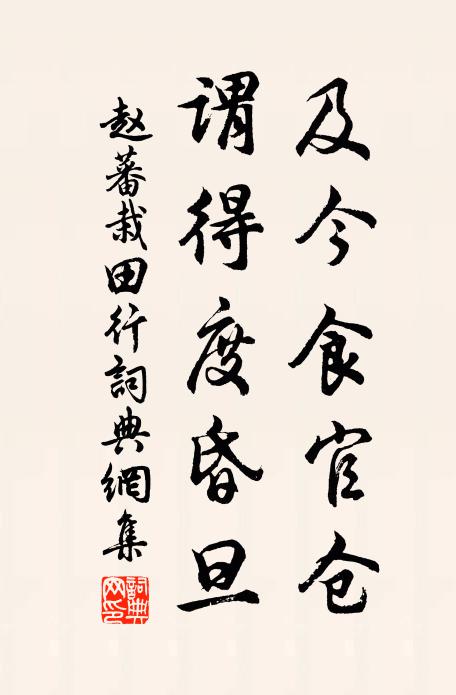 及今食官仓
谓得度昏旦
赵蕃栽田行詞典網集
詞典网印